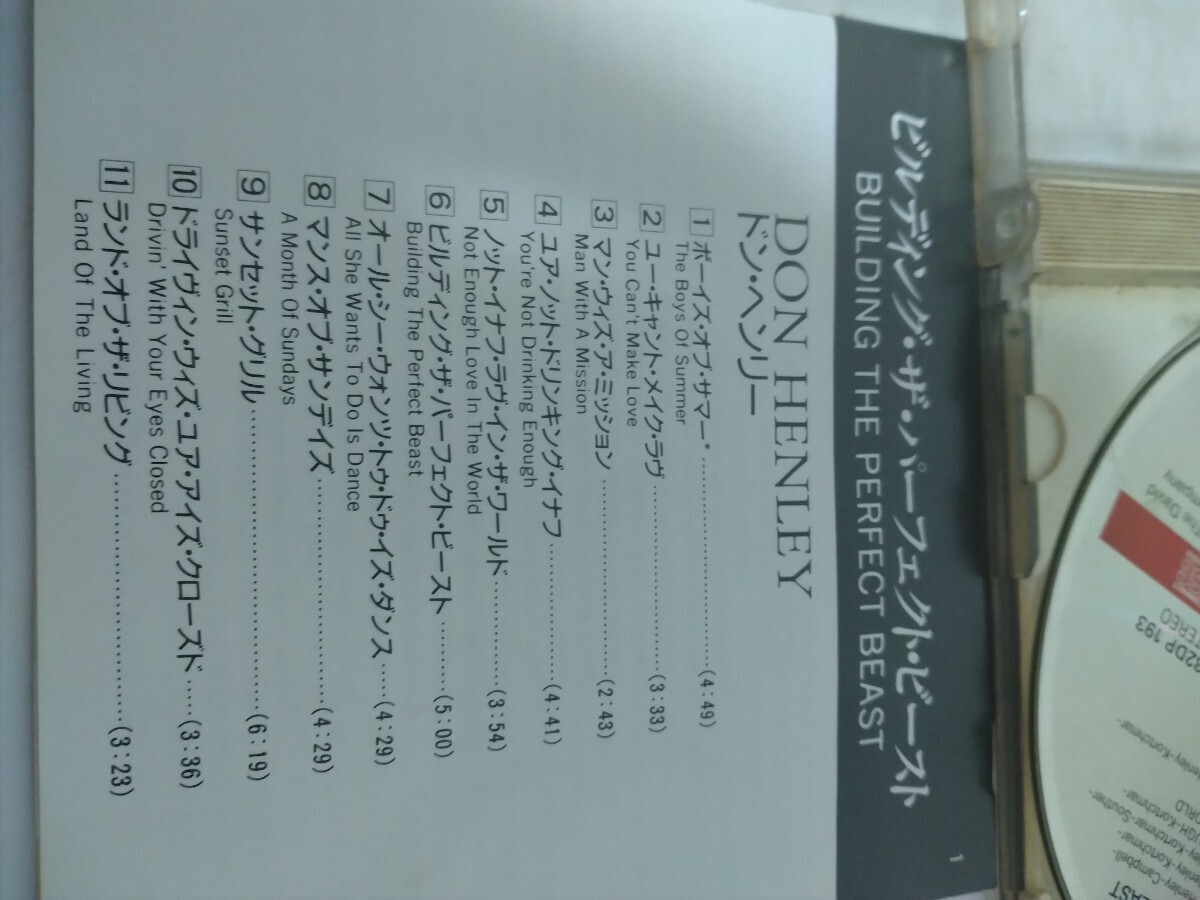 ビルディング・ザ・パーフェクト・ビースト
BUILDING THE PERFECT BEAST
DON HENLEY
ドン・ヘンリー
1 ボーイズ・オブ・サマー・ (4:49)
The Boys Of Summer
2 ユー・キャント・メイク・ラヴ (3:33)
You Can't Make Love
3 マン・ウィズ・ア・ミッション (2:43)
Man With A Mission
4 ユア・ノット・ドリンキング・イナフ (4:41)
You're Not Drinking Enough
5 ノット・イナフ・ラヴ・イン・ザ・ワールド (3:54)
Not Enough Love In The World
6 ビルディング・ザ・パーフェクト・ビースト (5:00)
Building The Perfect Beast
7 オール・シー・ウォンツ・トゥ・ドゥ・イズ・ダンス (4:29)
All She Wants To Do Is Dance
8 マンス・オブ・サンデイズ (4:29)
A Month Of Sundays
9 サンセット・グリル (6:19)
Sunset Grill
10 ドライヴィン・ウィズ・ユア・アイズ・クローズド (3:36)
Drivin' With Your Eyes Closed
11 ランド・オブ・ザ・リビング (3:23)
Land Of The Living
1
David
32DP 193